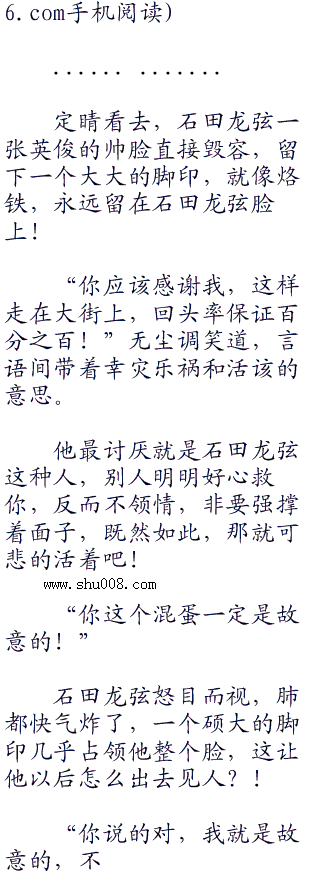 6.com手机阅读)
...... .......
定睛看去，石田龙弦一
张英俊的帅脸直接毁容，留
下一个大大的脚印，就像烙
铁，永远留在石田龙弦脸
上！
“你应该感谢我，这样
走在大街上，回头率保证百
分之百！”无尘调笑道，言
语间带着幸灾乐祸和活该的
意思。
他最讨厌就是石田龙弦
这种人，别人明明好心救
你，反而不领情，非要强撑
着面子，既然如此，那就可
悲的活着吧！
www.shu008.com
“你这个混蛋一定是故
意的！”
石田龙弦怒目而视，肺
都快气炸了，一个硕大的脚
印几乎占领他整个脸，这让
他以后怎么出去见人？！
“你说的对，我就是故
意的，不